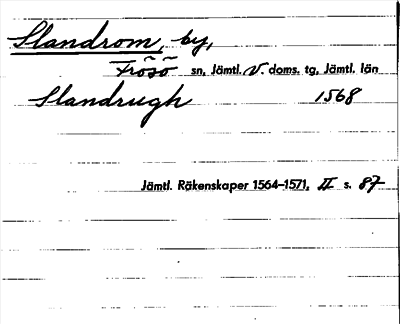 Slandrom, by,
Frösö sn, Jämtl. V. doms. tg, Jämtl. län
Slandrugh 1568
Jämtl. Räkenskaper 1564–1571, II s. 87